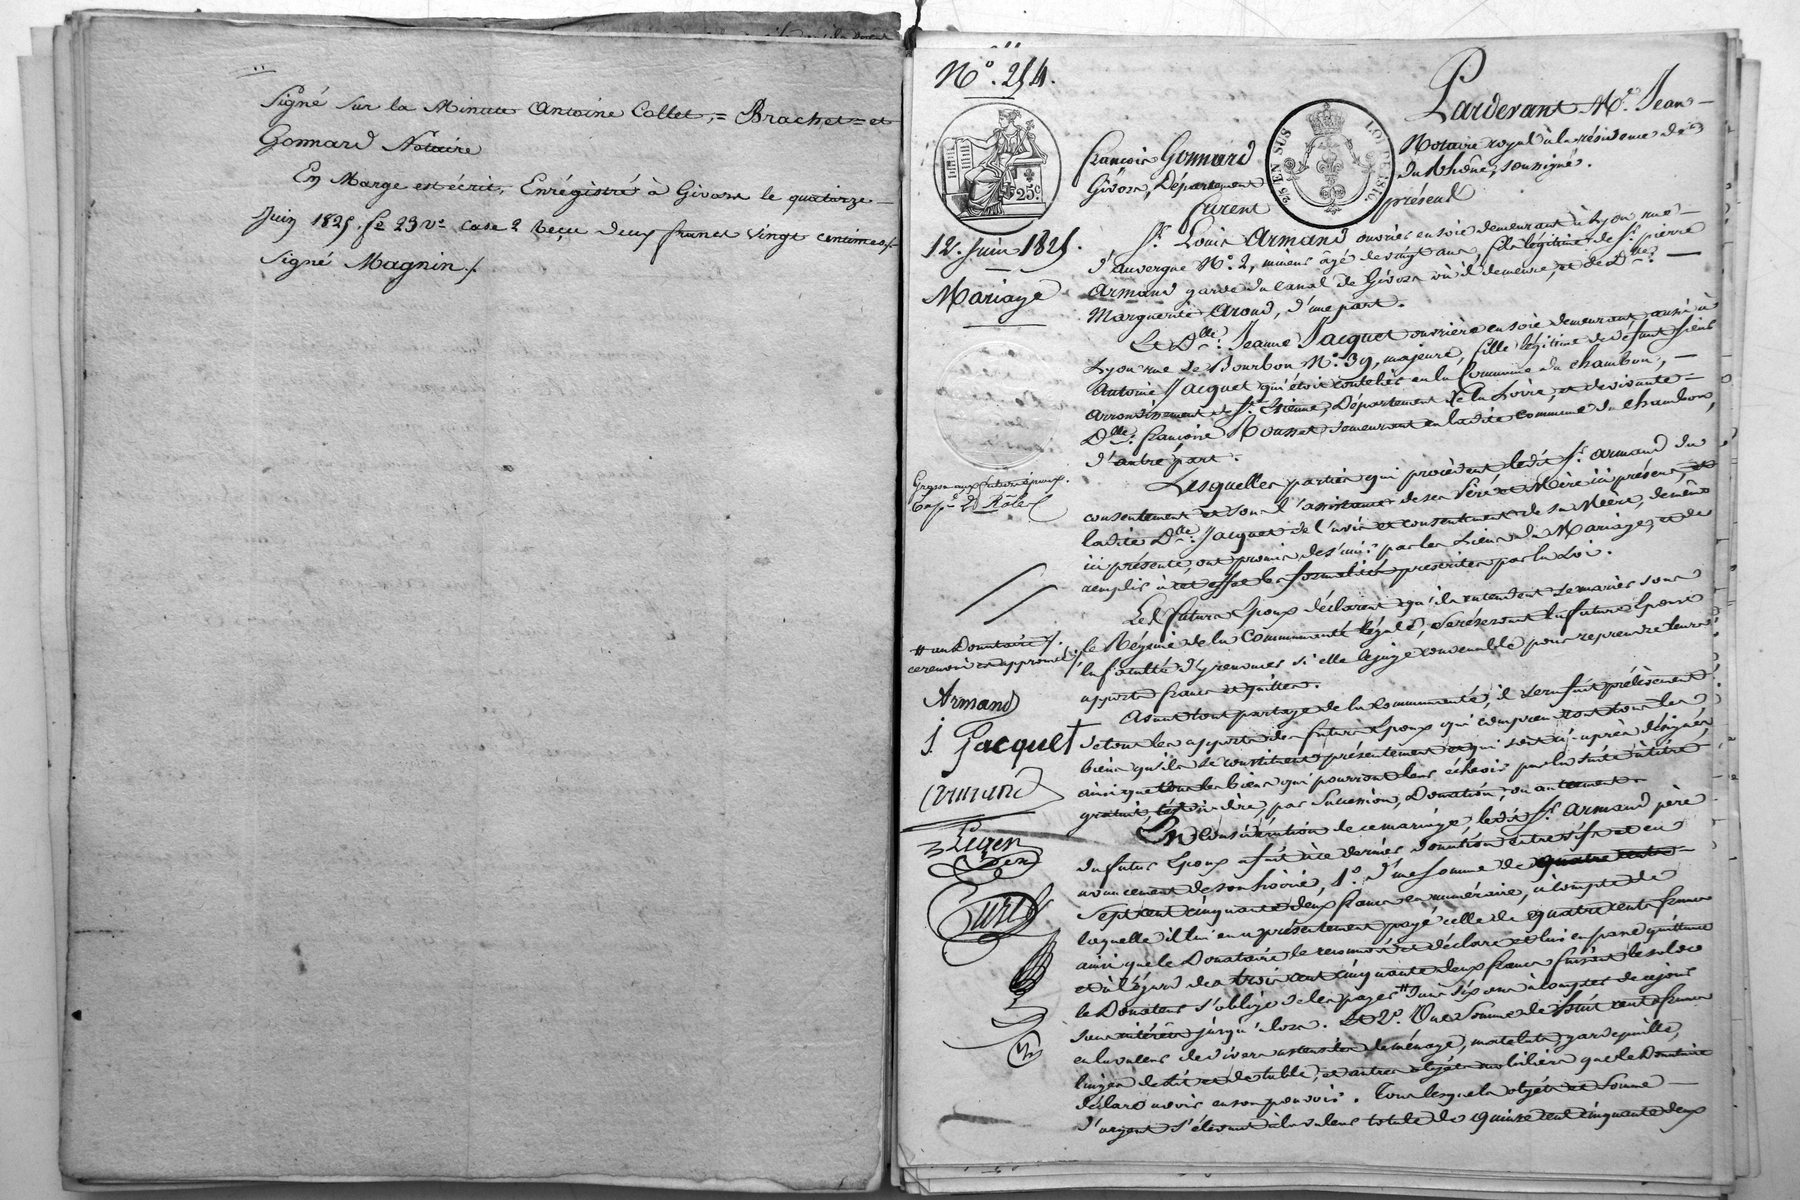 Signé sur la Minute Antoine Collet, = Brachet = et
Gonnard Notaire
En Marge est écrit, Enrégistré à Givors le quatorze
Juin 1825. fo 23 vo case 2 reçu deux francs vingt centimes
Signé Magnin
No. 254.
12. Juin 1825.
Mariage
Pardevant Me. Jean
françois Gonnard Notaire royal à la résidence de
Givors, Département du Rhône, soussigné.
furent présens
25c.
25 EN SUS
LOI DE 1816
Sr. Louis Armand ouvrier en soie demeurant à Lyon rue
d'auvergne No. 2, mineur âgé de vingt ans, fils légitime de Sr. pierre
Armand garde du Canal de Givors où il demeure, et de Dlle.
Marguerite Aroud, d'une part.
Et Dlle. Jeanne Jacquet ouvrière en soie demeurant aussi à
Lyon rue de Bourbon No. 39, majeure, fille légitime de défunt Sieur
Antoine Jacquet qui étoit coutelier en la Commune du chambon,
arrondissement de St. Etienne, Département de la Loire, et de vivante
Dlle. françoise Rousset demeurant en ladite commune du chambon,
d'autre part.
Lesquelles parties qui procèdent ledit Sr. Armand du
consentement et sous l'assistance de ses Père et Mère ici présens, et
ladite Dlle. Jacquet de l'avis et consentement de sa Mère, de même
ici présente, ont promis de s'unir par les Liens du Mariage, et de
remplir à cet effet les formalités prescrites par la Loi.
Les futurs Epoux déclarent qu'ils entendent se marier sous
le Régime de la Communauté légale, se réservant la future Epouse
la faculté d'y renoncer si elle le juge convenable pour reprendre leurs
apports francs et quittes.
Avant tout partage de la Communauté, il sera fait prélèvement
de tous les apports des futurs Epoux qui comprendront tous les
biens qu'ils se constituent présentement et qui sont ci-après désignés,
ainsi que tous les biens qui pourront leur échoir par la suite à titre
gratuit, c'est-à-dire, par Succession, Donation, ou autrement.
En Considération de ce mariage, ledit Sr. Armand père
du futur Epoux a fait à ce dernier donation entrevifs et en
avancement de son hoirie, 1o. d'une somme de
Sept cent cinquante deux francs en numéraire, à compte de
laquelle il lui en a présentement payé celle de quatre cents francs
ainsi que le Donataire le reconnoit et déclare et lui en passe quittance
et à l'égard des trois cent cinquante deux francs faisant le solde
le Donateur s'oblige de les payer # dans six ans à compter de ce jour
sans intérêts jusqu'alors. Et 2o. Une Somme de huit cents francs
en la valeur de divers ustensiles de ménage, matelats, garde paille,
linges de lit et de table, et autres objets mobiliers que le Donataire
déclare avoir en son pouvoir. Tous lesquels objets et Somme
d'argent s'élevant à la valeur totale de quinze cent cinquante deux
# au Donataire
ce renvoi est approuvé
Armand
J. Jacquet
Armand